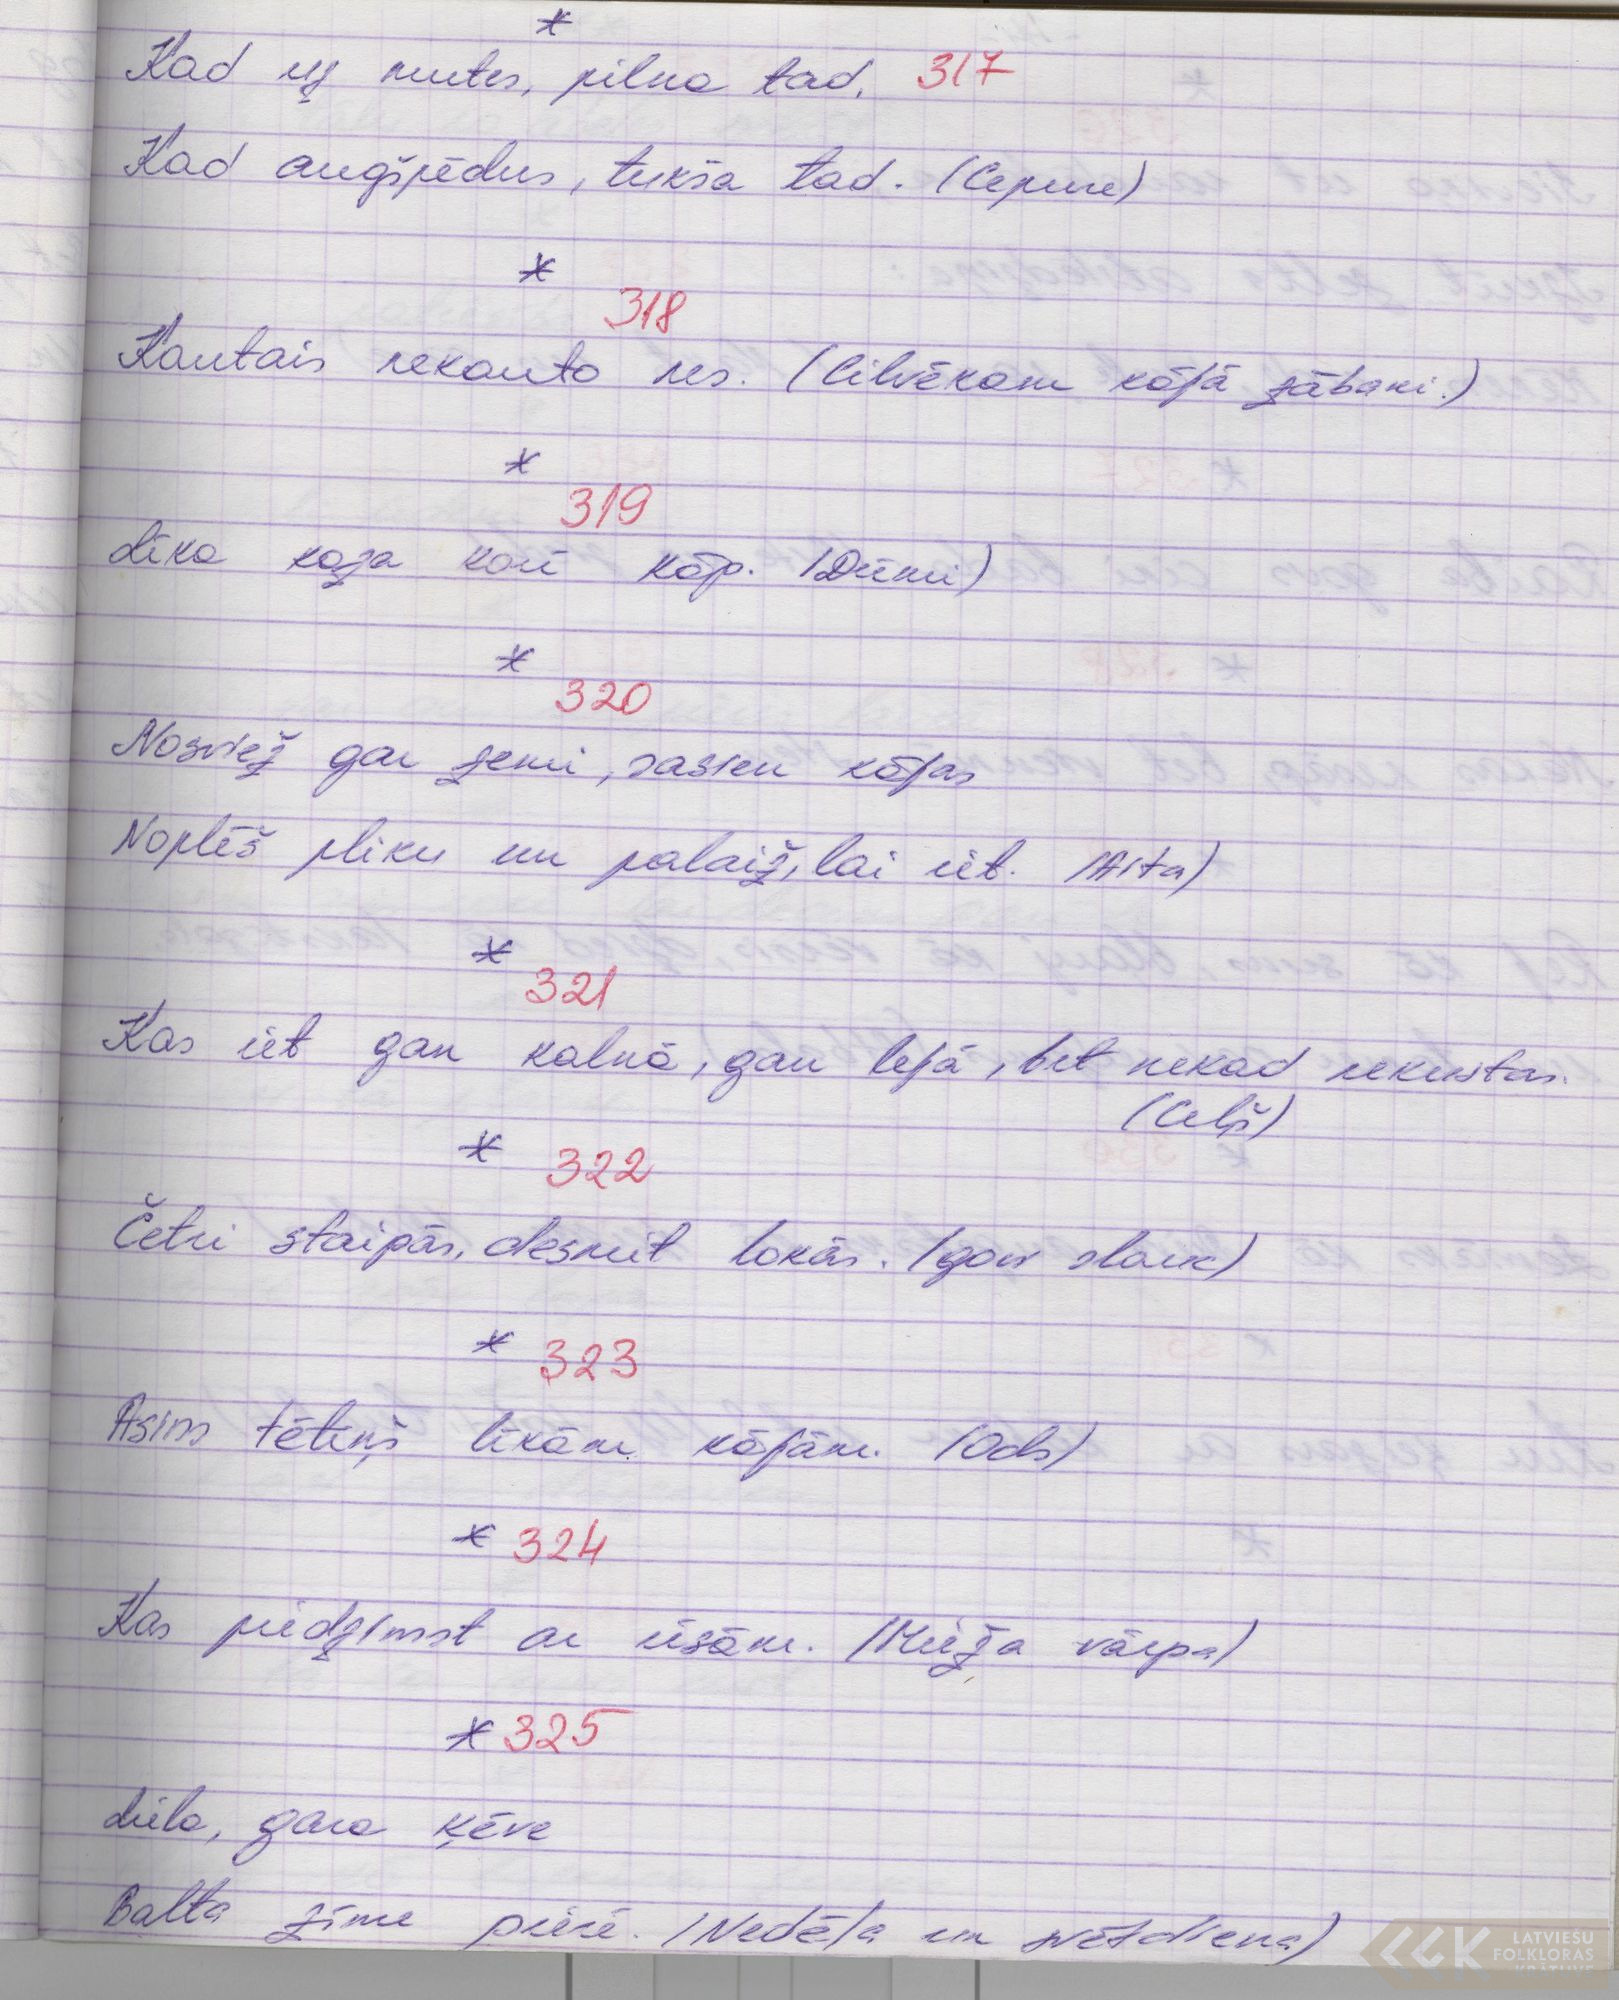 *
Kad uz mutes, pilna tad. 317
Kad augšpēdus, tukša tad. (Cepure)
*
318
Kautais nekauto nes. (Cilvēkam kājā zābaki.)
*
319
Līka kaza kokā kāp. (Dūmi)
*
320
Nosviež gar zemi, sasien kājas
Noplēš pliku un palaiž, lai iet. (Aita)
*
321
Kas iet gan kalnā, gan lejā, bet nekad nekustas.
(Ceļš)
* 322
Četri staipās, desmit lokās. (govi slauc)
* 323
Asins tētiņš līkām kājām. (Ods)
* 324
Kas piedzimst ar ūsām. (Mieža vārpa)
* 325
Liela, gara ķēve
Balta zīme pierē. (Nedēļa un svētdiena)
LATVIEŠU
FOLKLORAS
KRĀTUVE